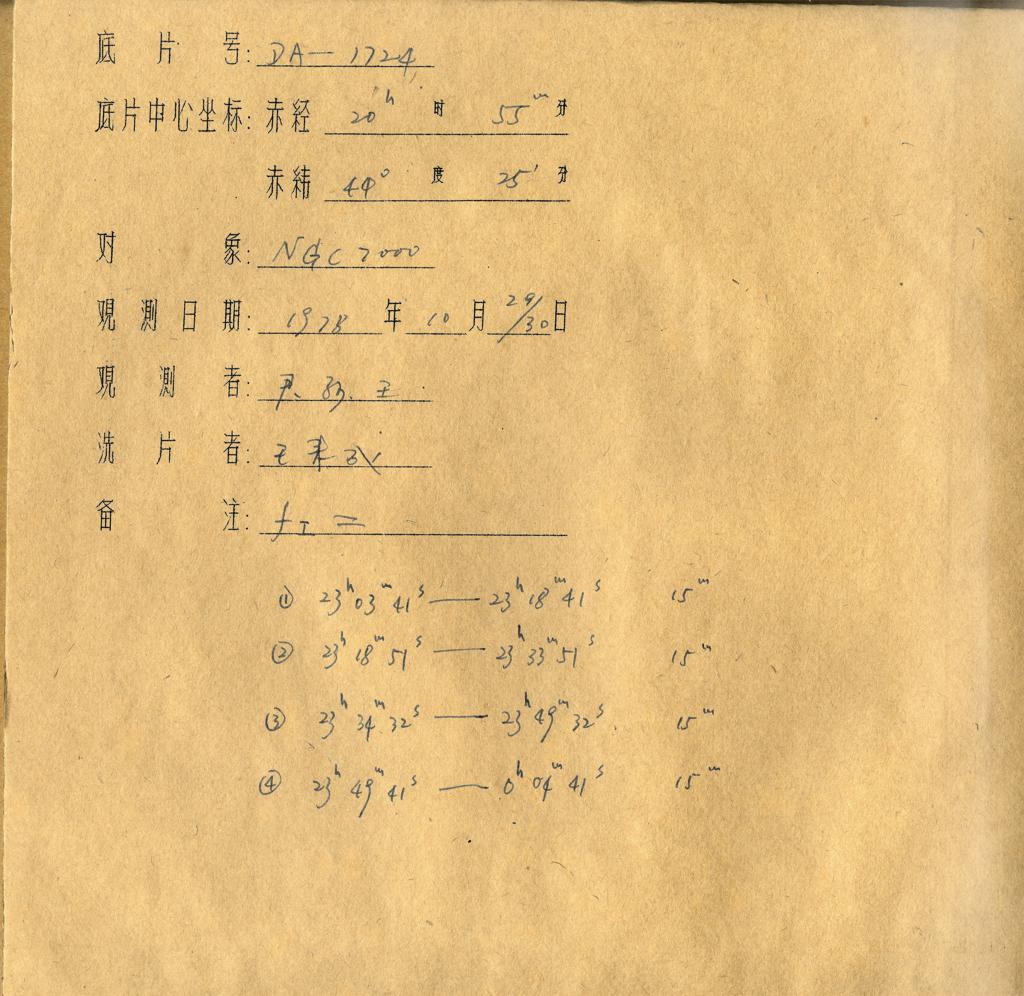 底片号: DA—1724
底片中心坐标: 赤经 20ʰ 时 55ᵐ 分
赤纬 44° 度 25′ 分
对象: NGC 7000
观测日期: 1978 年 10 月 29/30 日
观测者: 尹、孙、王
洗片者: 王
备注: 二
① 23ʰ03ᵐ41ˢ — 23ʰ18ᵐ41ˢ 15ᵐ
② 23ʰ18ᵐ51ˢ — 23ʰ33ᵐ51ˢ 15ᵐ
③ 23ʰ34ᵐ32ˢ — 23ʰ49ᵐ32ˢ 15ᵐ
④ 23ʰ49ᵐ41ˢ — 0ʰ04ᵐ41ˢ 15ᵐ